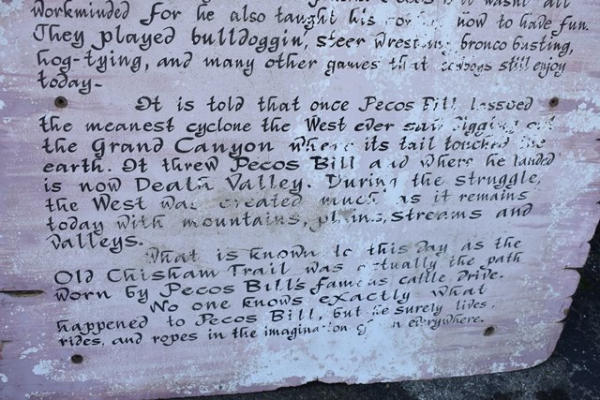 workminded for he also taught his how to have fun.
They played bulldoggin', steer wrestling, bronco busting,
hog-tying, and many other games that cowboys still enjoy
today-
It is told that once Pecos Bill lassoed
the meanest cyclone the West ever saw digging out
the Grand Canyon where its tail touched the
earth. It threw Pecos Bill and where he landed
is now Death Valley. During the struggle,
the West was created much as it remains
today with mountains, plains, streams and
valleys.
What is known to this day as the
Old Chisham Trail was actually the path
worn by Pecos Bill's famous cattle drive.
No one knows exactly what
happened to Pecos Bill, but he surely lives,
rides, and ropes in the imagination of everywhere.